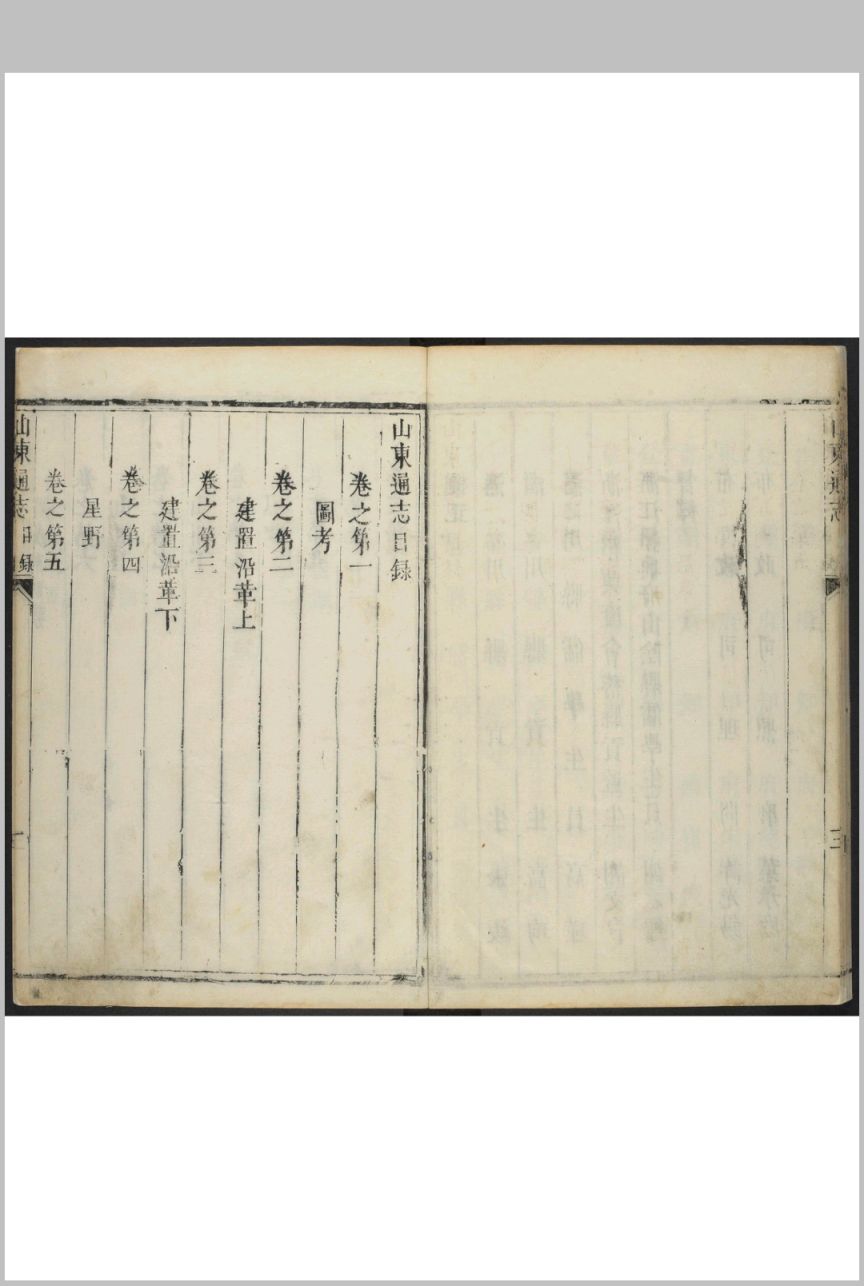 山東通志
三
山東通志目録
卷之第一
圖考
卷之第二
建置沿革上
卷之第三
建置沿革下
卷之第四
星野
卷之第五
山東通志 目録
一